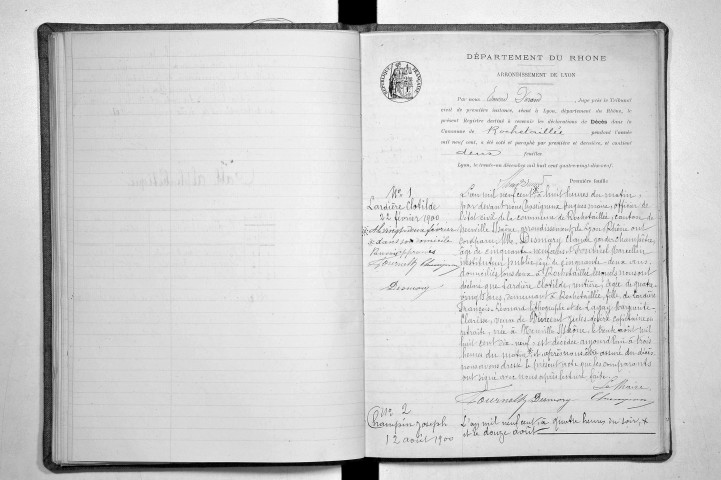 DÉPARTEMENT DU RHONE
ARRONDISSEMENT DE LYON
Par nous Juge près le Tribunal
civil de première instance, séant à Lyon, département du Rhône, le
présent Registre destiné à recevoir les déclarations de Décès dans la
Commune de Rochetaillée pendant l'année
mil neuf cent, a été coté et paraphé par première et dernière, et contient
deux feuilles
Lyon, le trente-un décembre mil huit cent quatre-vingt-dix-neuf.
Première feuille
N° 1
Lardière Clotilde
22 février 1900
Le vingt-deux février
x dans son domicile
Renvois approuvés
Tournelly
Desmory
L'an mil neuf cent à huit heures du matin,
par devant nous maire, officier de
l'état civil de la commune de Rochetaillée, canton de
Neuville s/Saône, arrondissement de Lyon (Rhône) ont
comparu MM. Desmory Claude, garde champêtre,
âgé de cinquante neuf ans et Marcellin
instituteur public, âgé de cinquante deux ans,
domiciliés tous deux à Rochetaillée lesquels nous ont
déclaré que Lardière Clotilde, rentière, âgée de quatre
vingts ans, demeurant à Rochetaillée, fille de Lardière
François et de Marguerite
Clarisse, veuve de Jules capitaine en
retraite, née à Neuville s/Saône, le trente août mil
huit cent dix neuf, est décédée aujourd'hui à trois
heures du matin et après nous être assuré du décès
nous avons dressé le présent acte que les comparants
ont signé avec nous après lecture faite.
Le Maire
Tournelly Desmory
N° 2
Champin Joseph
12 août 1900
L'an mil neuf cent à quatre heures du soir, x
et le douze août